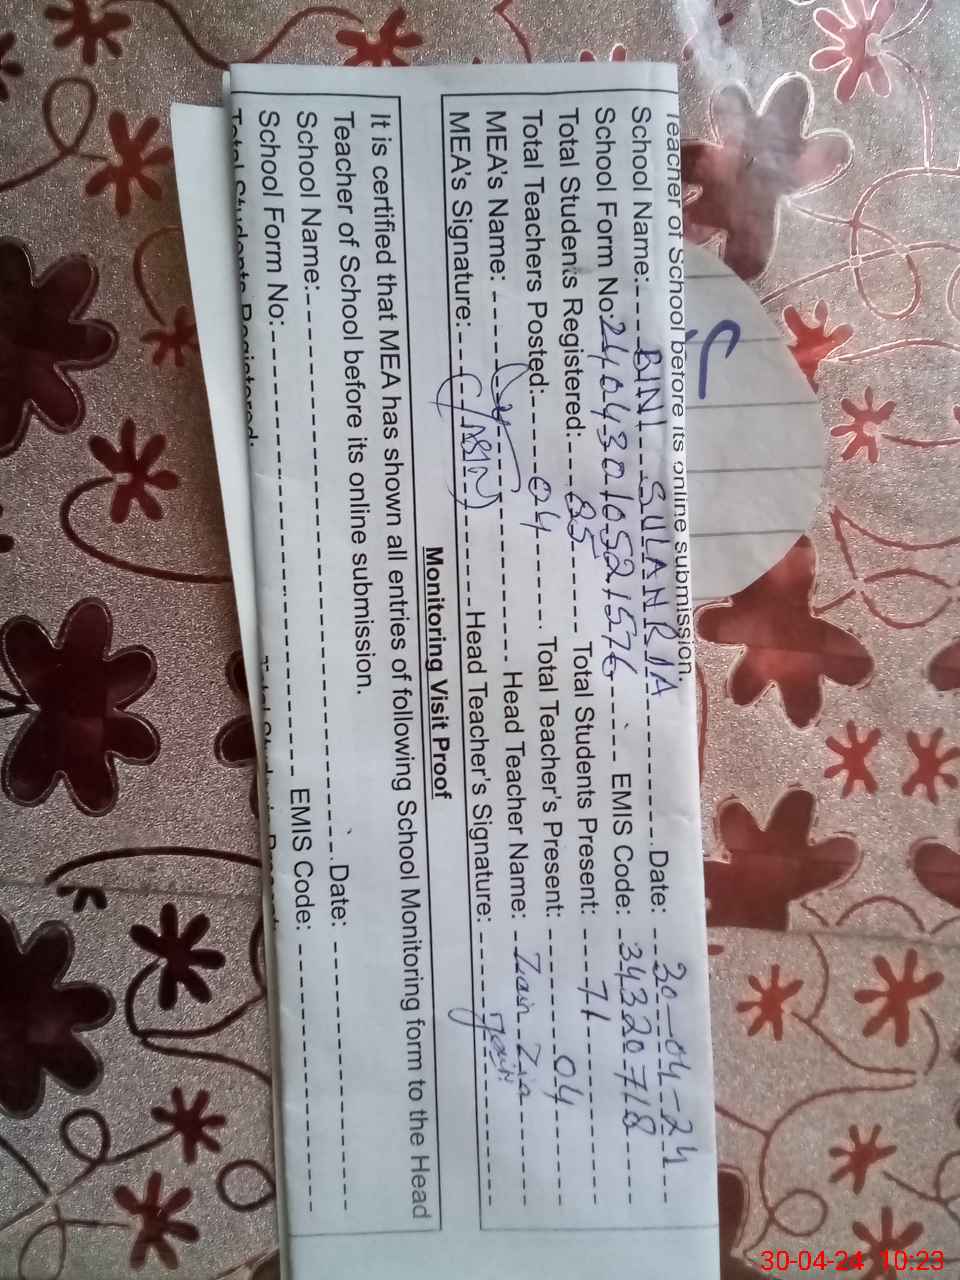 Teacher of School before its online submission.
School Name: BINI SULANRIA Date: 30-04-24
School Form No: 24043010521576 EMIS Code: 34320718
Total Students Registered: 85 Total Students Present: 71
Total Teachers Posted: 04 Total Teacher's Present: 04
MEA's Name: Head Teacher Name: Zain Zia
MEA's Signature: (YASIN) Head Teacher's Signature: Zain
Monitoring Visit Proof
It is certified that MEA has shown all entries of following School Monitoring form to the Head
Teacher of School before its online submission.
School Name: Date:
School Form No: EMIS Code:
Total Students Registered:
30-04-24 10:23